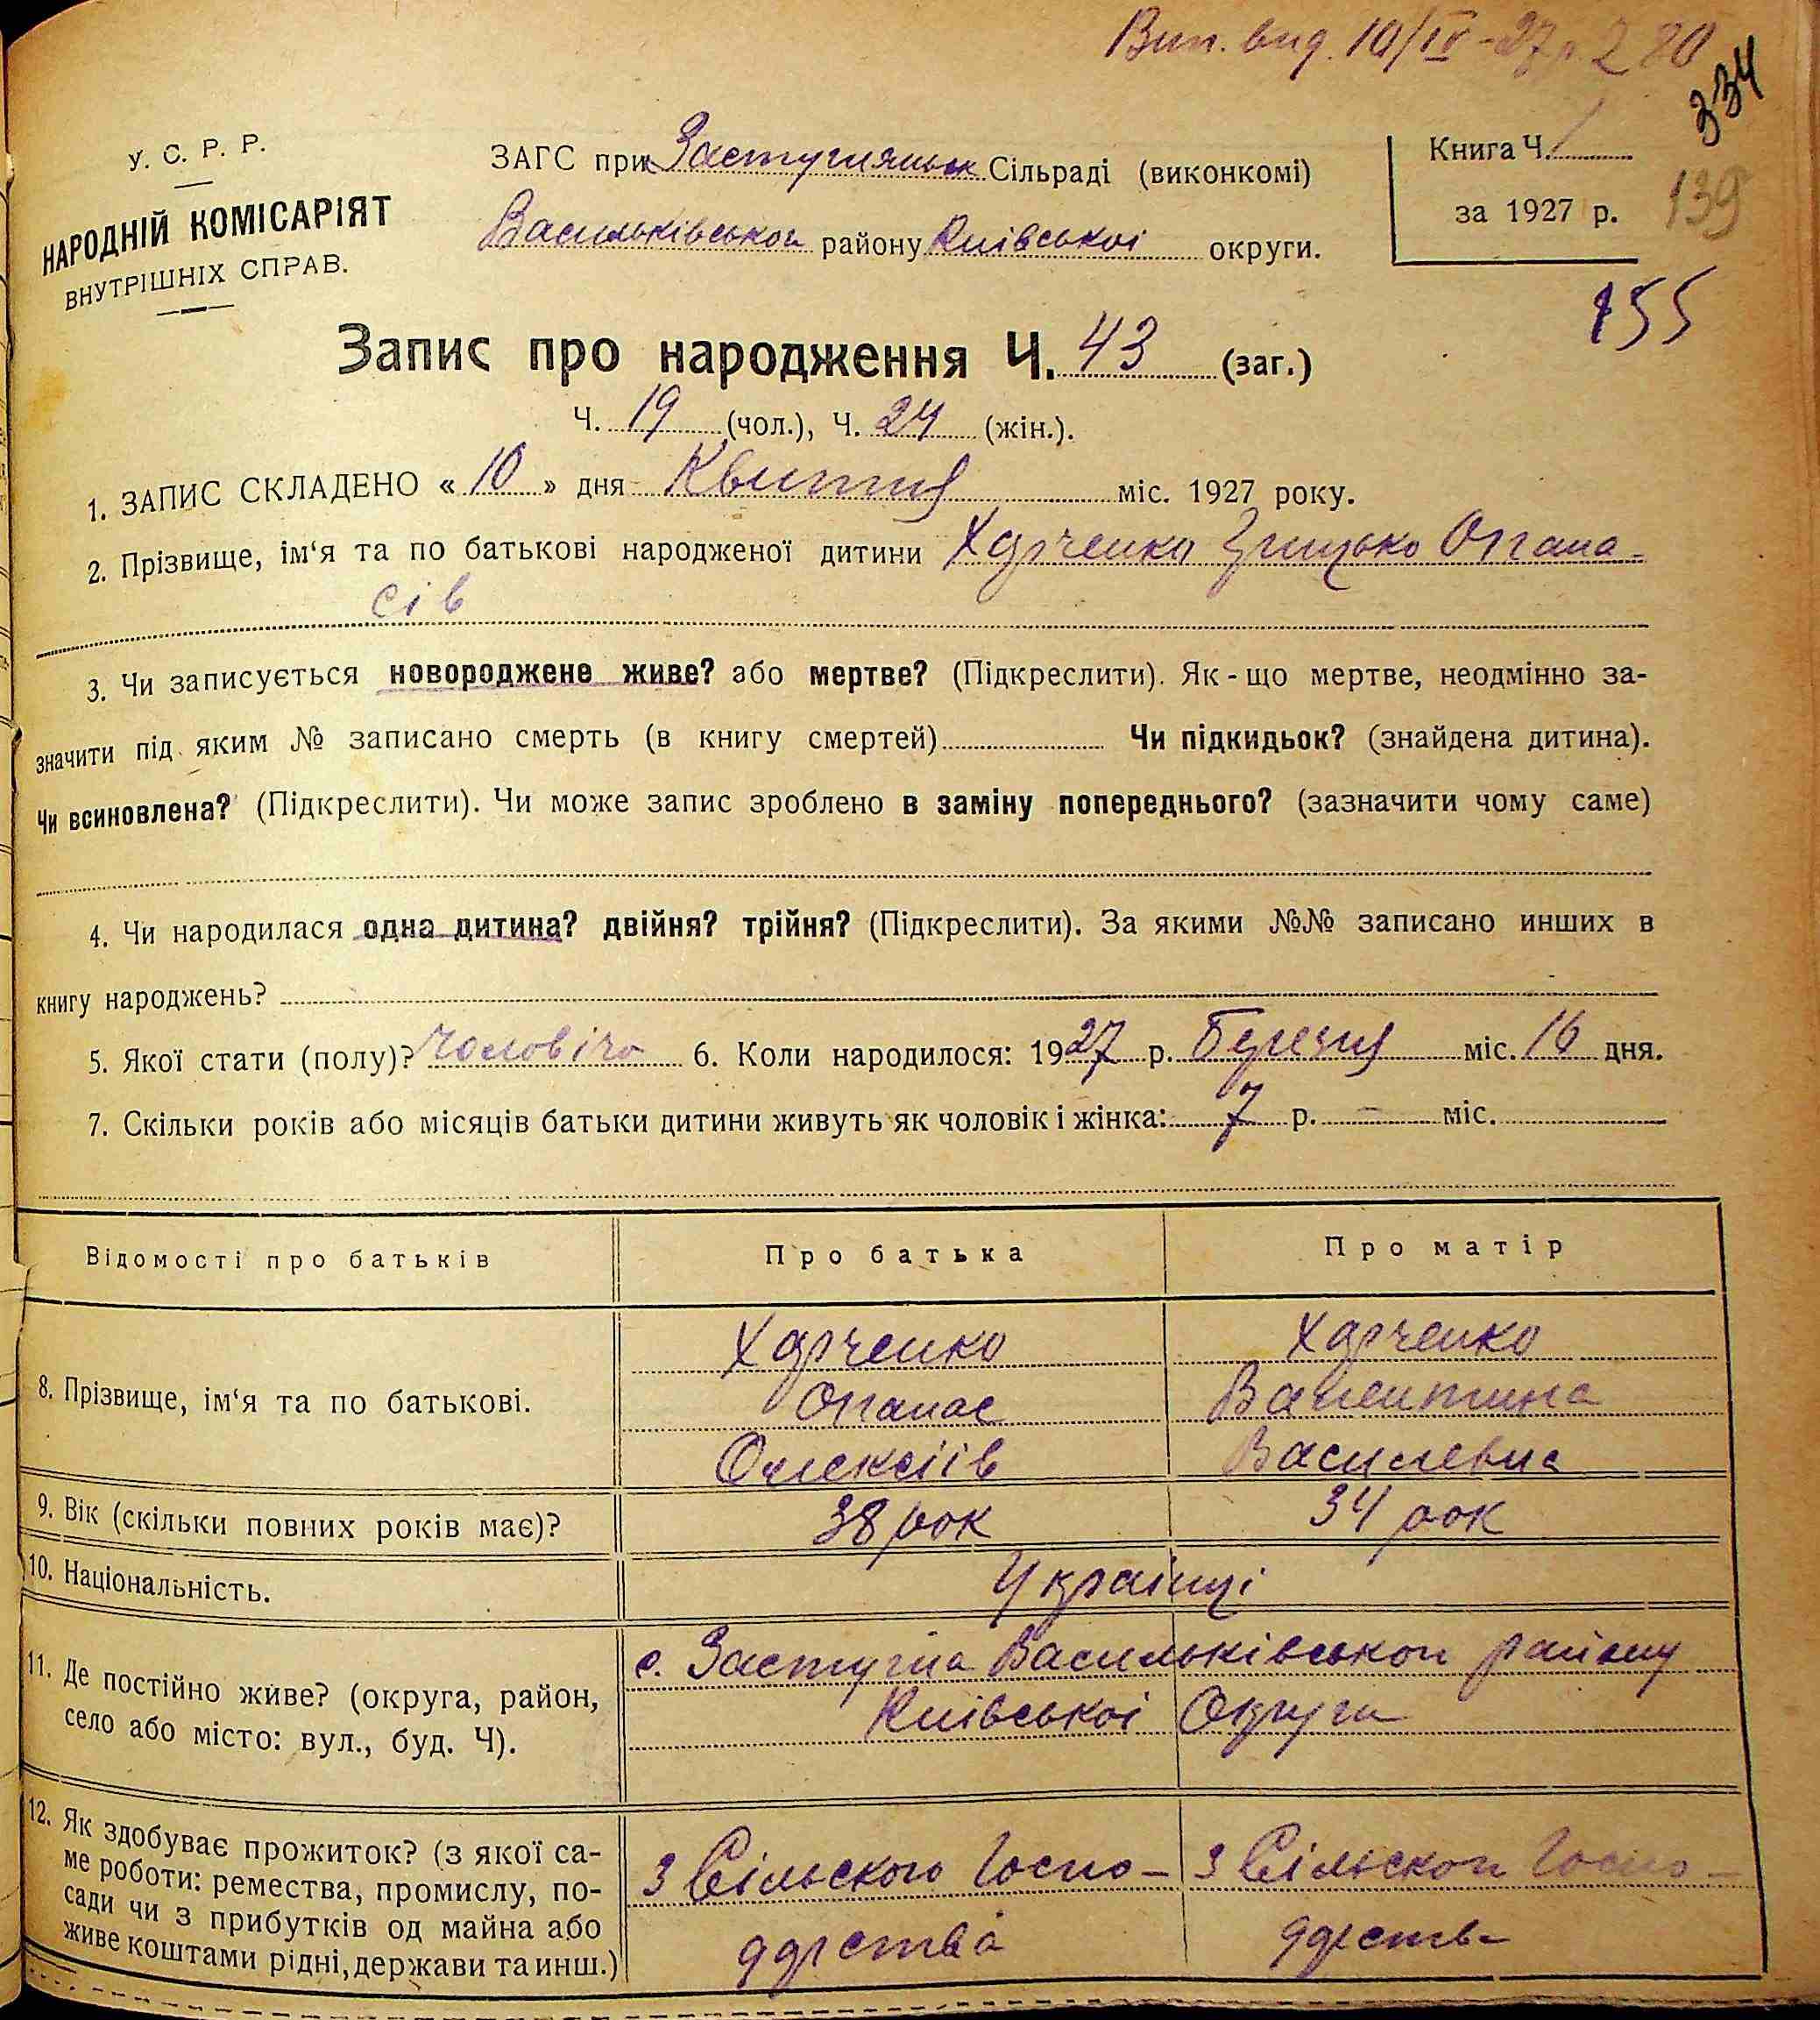 Вип. вид. 10/IV-27р. 2 80
334
У. С. Р. Р.
НАРОДНІЙ КОМІСАРІЯТ
ВНУТРІШНІХ СПРАВ.
ЗАГС при Застугнянськ Сільраді (виконкомі)
Васильківського району Київської округи.
Книга Ч.
за 1927 р.
139
155
Запис про народження Ч. 43 (заг.)
Ч. 19 (чол.), Ч. 24 (жін.).
1. ЗАПИС СКЛАДЕНО « 10 » дня Квітня міс. 1927 року.
2. Прізвище, ім‘я та по батькові народженої дитини Харченко Грицько Опана-
сів
3. Чи записується новороджене живе? або мертве? (Підкреслити). Як-що мертве, неодмінно за-
значити під яким № записано смерть (в книгу смертей) Чи підкидьок? (знайдена дитина).
Чи всиновлена? (Підкреслити). Чи може запис зроблено в заміну попереднього? (зазначити чому саме)
4. Чи народилася одна дитина? двійня? трійня? (Підкреслити). За якими №№ записано инших в
книгу народжень?
5. Якої стати (полу)? Чоловічо 6. Коли народилося: 1927 р. Березня міс. 16 дня.
7. Скільки років або місяців батьки дитини живуть як чоловік і жінка: 7 р. – міс.
Відомості про батьків Про батька Про матір
8. Прізвище, ім‘я та по батькові.
Харченко
Опанас
Олексіїв
Харченко
Валентина
Василевна
9. Вік (скільки повних років має)? 38 рок 34 рок
10. Національність. Українці
11. Де постійно живе? (округа, район,
село або місто: вул., буд. Ч).
с. Застугна Васильківськог району
Київської Округи
12. Як здобуває прожиток? (з якої са-
ме роботи: ремества, промислу, по-
сади чи з прибутків од майна або
живе коштами рідні, держави та инш.)
З Сільского Госпо-
дарства
З Сільског Госпо-
дарств